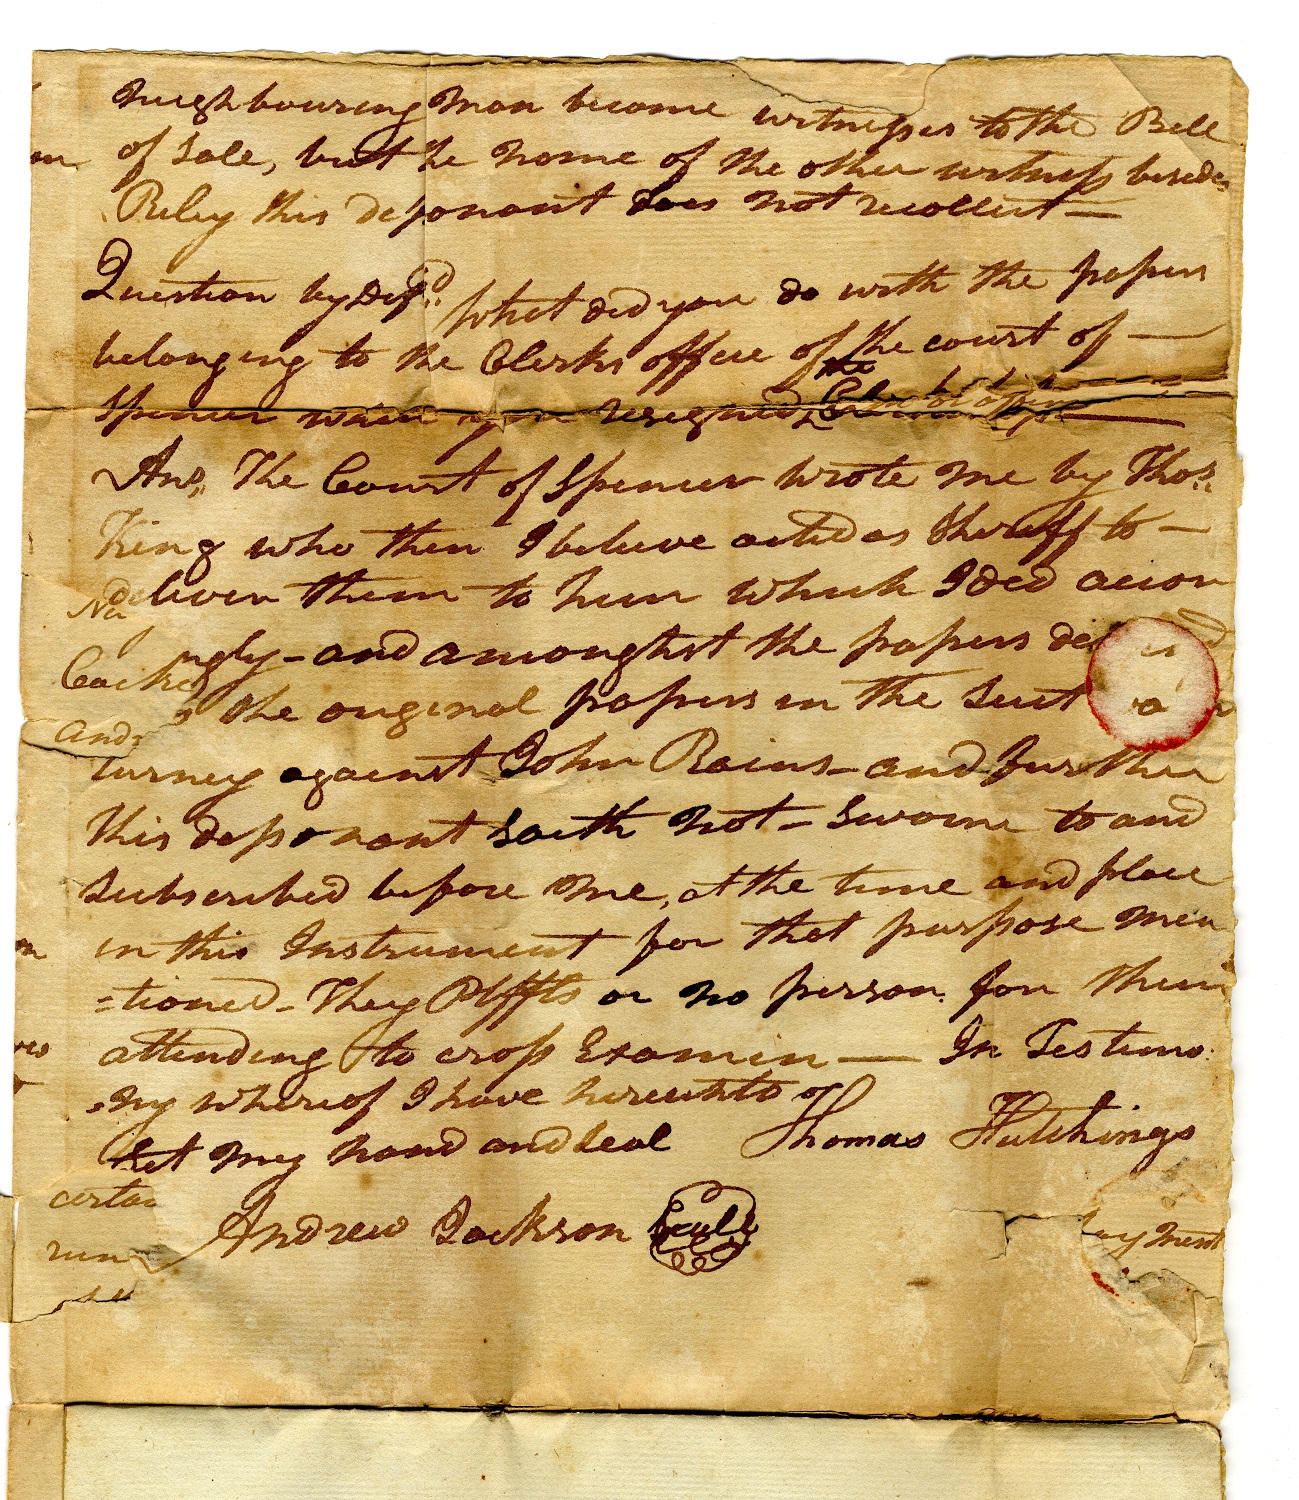 neighbouring man became witnesses to the Bill
of Sale, but the name of the other witness besides
Riley this deponant does not recollect —
Question by Defd. What did you do with the papers
belonging to the Clerks office of the court of —
Spencer when you resigned, the
Ans. The Court of Spencer wrote me by Thos.
King who then I believe acted as Sheriff to —
deliver them to him which I did accor
ngly - and amonghst the papers
the original papers in the suit
turney against John Rains - and further
this deponant saith not - Sworne to and
subscribed before me, at the time and place
in this Instrument for that purpose men
=tioned - They Plffts or no person for them
attending to cross Examin — In Testimo
=ny whereof I have hereunto of
Set my hand and Seal Thomas Hutchings
Andrew Jackson Seal
Na
and
certa
run
ayment